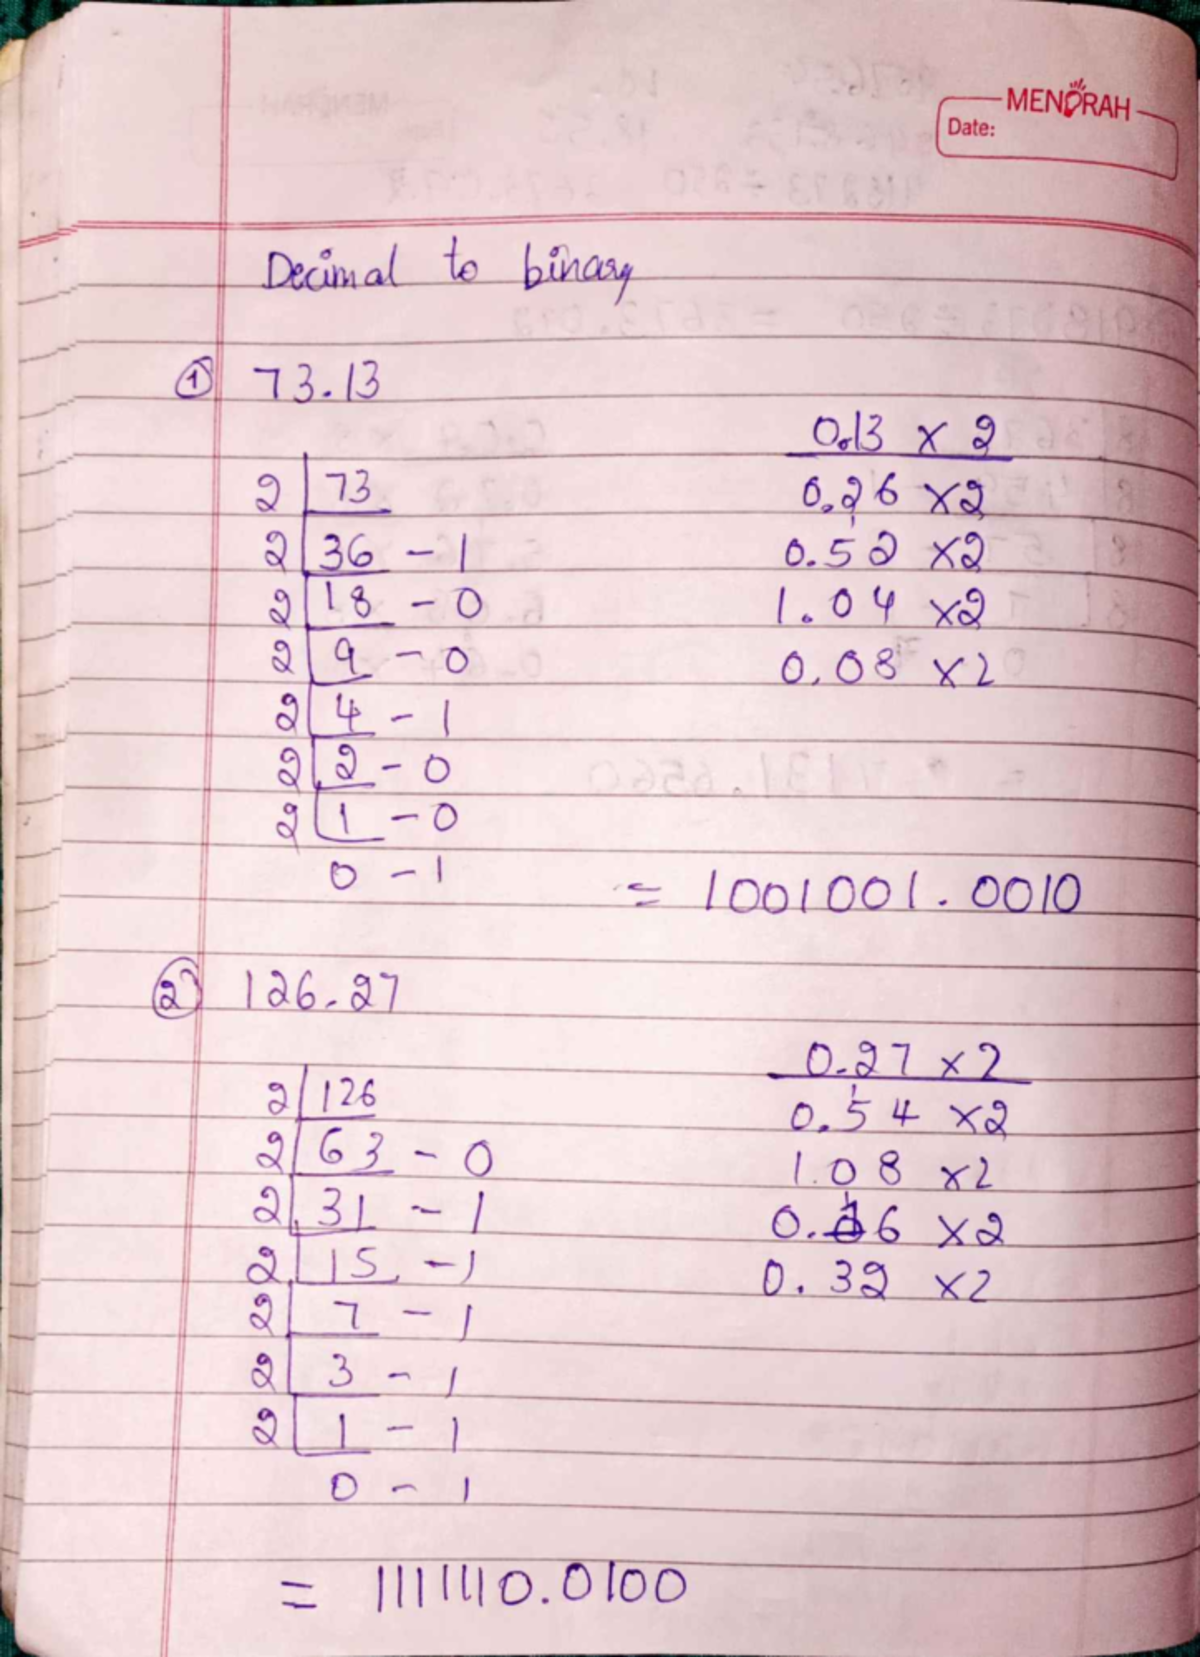 MENORAH
Date:
Decimal to binary
① 73.13
0.13 × 2
2 | 73
0.26 ×2
2 | 36 - 1
0.52 ×2
2 | 18 - 0
1.04 ×2
2 | 9 - 0
0.08 ×2
2 | 4 - 1
2 | 2 - 0
2 | 1 - 0
0 - 1
= 1001001.0010
② 126.27
0.27 ×2
2 | 126
0.54 ×2
2 | 63 - 0
1.08 ×2
2 | 31 - 1
0.16 ×2
2 | 15 - 1
0.32 ×2
2 | 7 - 1
2 | 3 - 1
2 | 1 - 1
0 - 1
= 1111110.0100